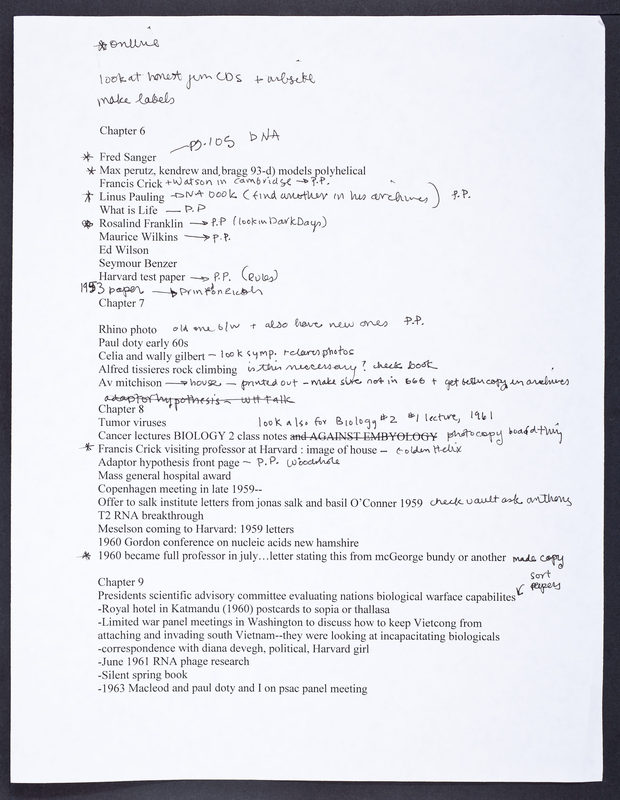 * online
look at honest jim CDs + website
make labels
Chapter 6
pp.105 DNA
* Fred Sanger
* Max perutz, kendrew and bragg 93-d) models polyhelical
Francis Crick + Watson in Cambridge → P.P.
* Linus Pauling → DNA book (find another in his archives) P.P.
What is Life — P.P
* Rosalind Franklin → P.P (look in Dark Days)
Maurice Wilkins → P.P.
Ed Wilson
Seymour Benzer
Harvard test paper → P.P. (rules)
1953 paper →
Chapter 7
Rhino photo old one b/w + also have new ones P.P.
Paul doty early 60s
Celia and wally gilbert – look symp. photos
Alfred tissieres rock climbing is this neccessary? check book
Av mitchison → house – printed out – make sure not in + get better copy in archives
adaptor hypothesis – talk
Chapter 8
Tumor viruses look also for Biology #2 #1 lecture, 1961
Cancer lectures BIOLOGY 2 class notes and AGAINST EMBYOLOGY photocopy board thing
* Francis Crick visiting professor at Harvard : image of house – Golden Helix
Adaptor hypothesis front page – P.P. Woodshole
Mass general hospital award
Copenhagen meeting in late 1959--
Offer to salk institute letters from jonas salk and basil O’Conner 1959 check vault ask anthony
T2 RNA breakthrough
Meselson coming to Harvard: 1959 letters
1960 Gordon conference on nucleic acids new hamshire
* 1960 became full professor in july…letter stating this from mcGeorge bundy or another made copy
Chapter 9
sort papers
Presidents scientific advisory committee evaluating nations biological warface capabilites
-Royal hotel in Katmandu (1960) postcards to sopia or thallasa
-Limited war panel meetings in Washington to discuss how to keep Vietcong from
attaching and invading south Vietnam--they were looking at incapacitating biologicals
-correspondence with diana devegh, political, Harvard girl
-June 1961 RNA phage research
-Silent spring book
-1963 Macleod and paul doty and I on psac panel meeting